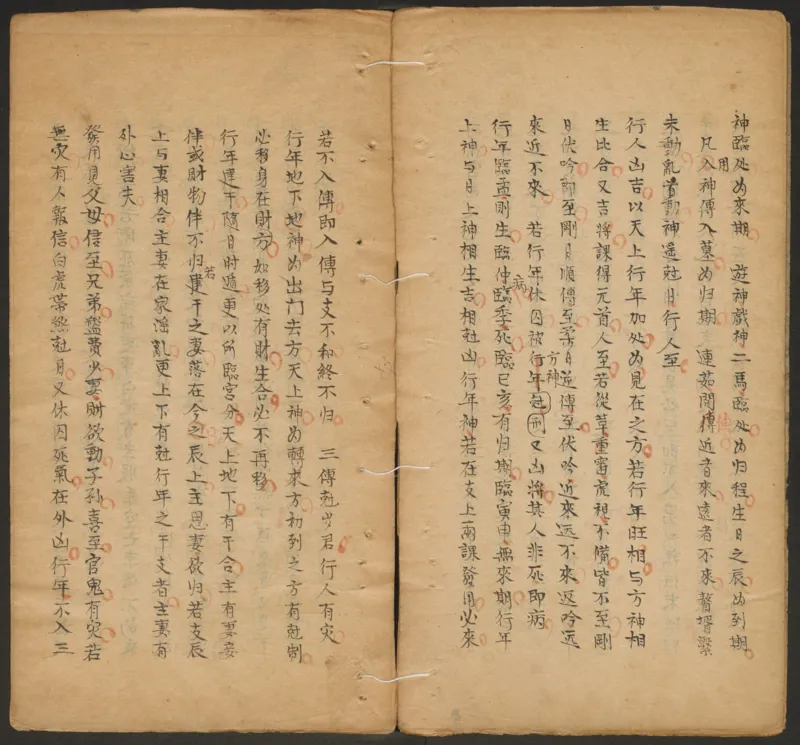 神臨处为來期　遊神戯神二馬臨处为归程生日之辰为到期
凡入神傳入墓为归期　連茹間傳近者來遠者不來贅壻繫
用
未動亂首動神遥尅日行人至
行人凶吉以天上行年加处为見在之方若行年旺相与方神相
生比合又吉将課得元首人至若從革重審虎視不備皆不至剛
日伏吟即至剛日順傳至柔日逆傳至伏吟近來远不來返吟远
方神
來近不來　若行年休囚被行年尅刑又凶將其人非死即病
行年臨孟則生臨仲臨季死臨巳亥有归期臨寅申無來期行年
病
上神与日上神相生吉相尅凶行年神若在支上两課發用必來
若不入傳即入傳与支不和終不归　三傳尅岁君行人有灾
行年地下地神为出门去方天上神为轉來方初到之方有尅制
必移身在財方如移处有財生合必不再移
行年建干隨日时遁更以所臨宫分天上地下有干合主有妻妾
伴或財物伴不归建干之妻落在今之辰上主恩妻欲归若支辰
若
上与妻相合主妻在家淫亂更上下有尅行年之干支者主妻有
外心害夫
發用見父母信至兄弟盤費少妻財欲動子孙喜至官鬼有灾若
無灾有人報信白虎帯煞尅日又休囚死氣在外凶行年不入三